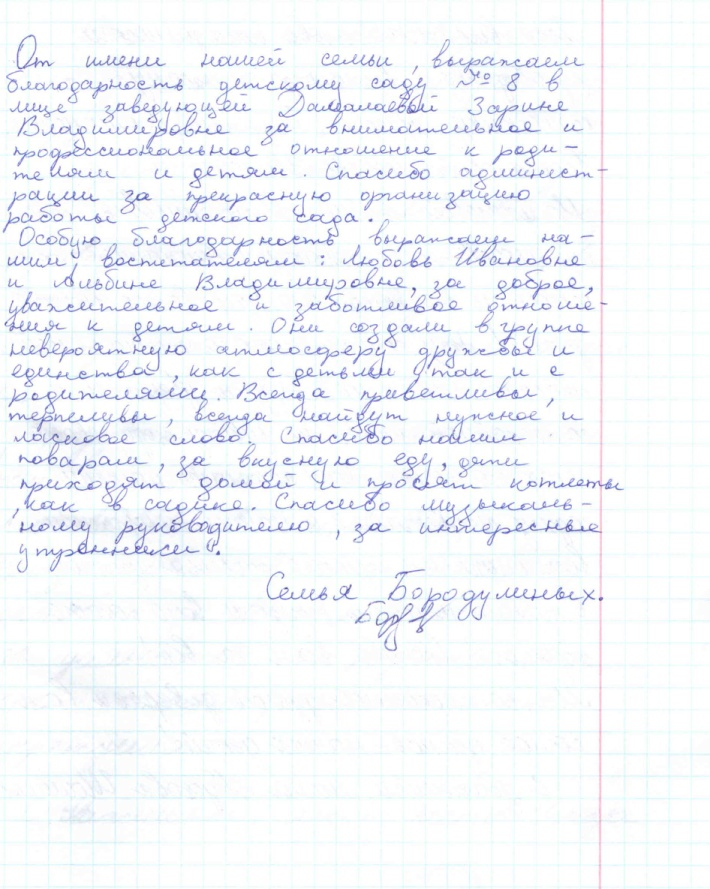 От имени нашей семьи, выражаем
благодарность детскому саду №8 в
лице заведующей Дамалаевой Зарине
Владимировне за внимательное и
профессиональное отношение к роди-
телям и детям. Спасибо админист-
рации за прекрасную организацию
работы детского сада.
Особую благодарность выражаем на-
шим воспитателям: Любовь Ивановне
и Альбине Владимировне, за доброе,
уважительное и заботливое отноше-
ния к детям. Они создали в группе
невероятную атмосферу дружбы и
единства, как с детьми, так и с
родителями. Всегда приветливы,
терпеливы, всегда найдут нужное и
ласковое слово. Спасибо нашим
поварам, за вкусную еду, дети
приходят домой и просят котлеты
, как в садике. Спасибо музыкаль-
ному руководителю, за интересные
утренники.
Семья Бородулиных.